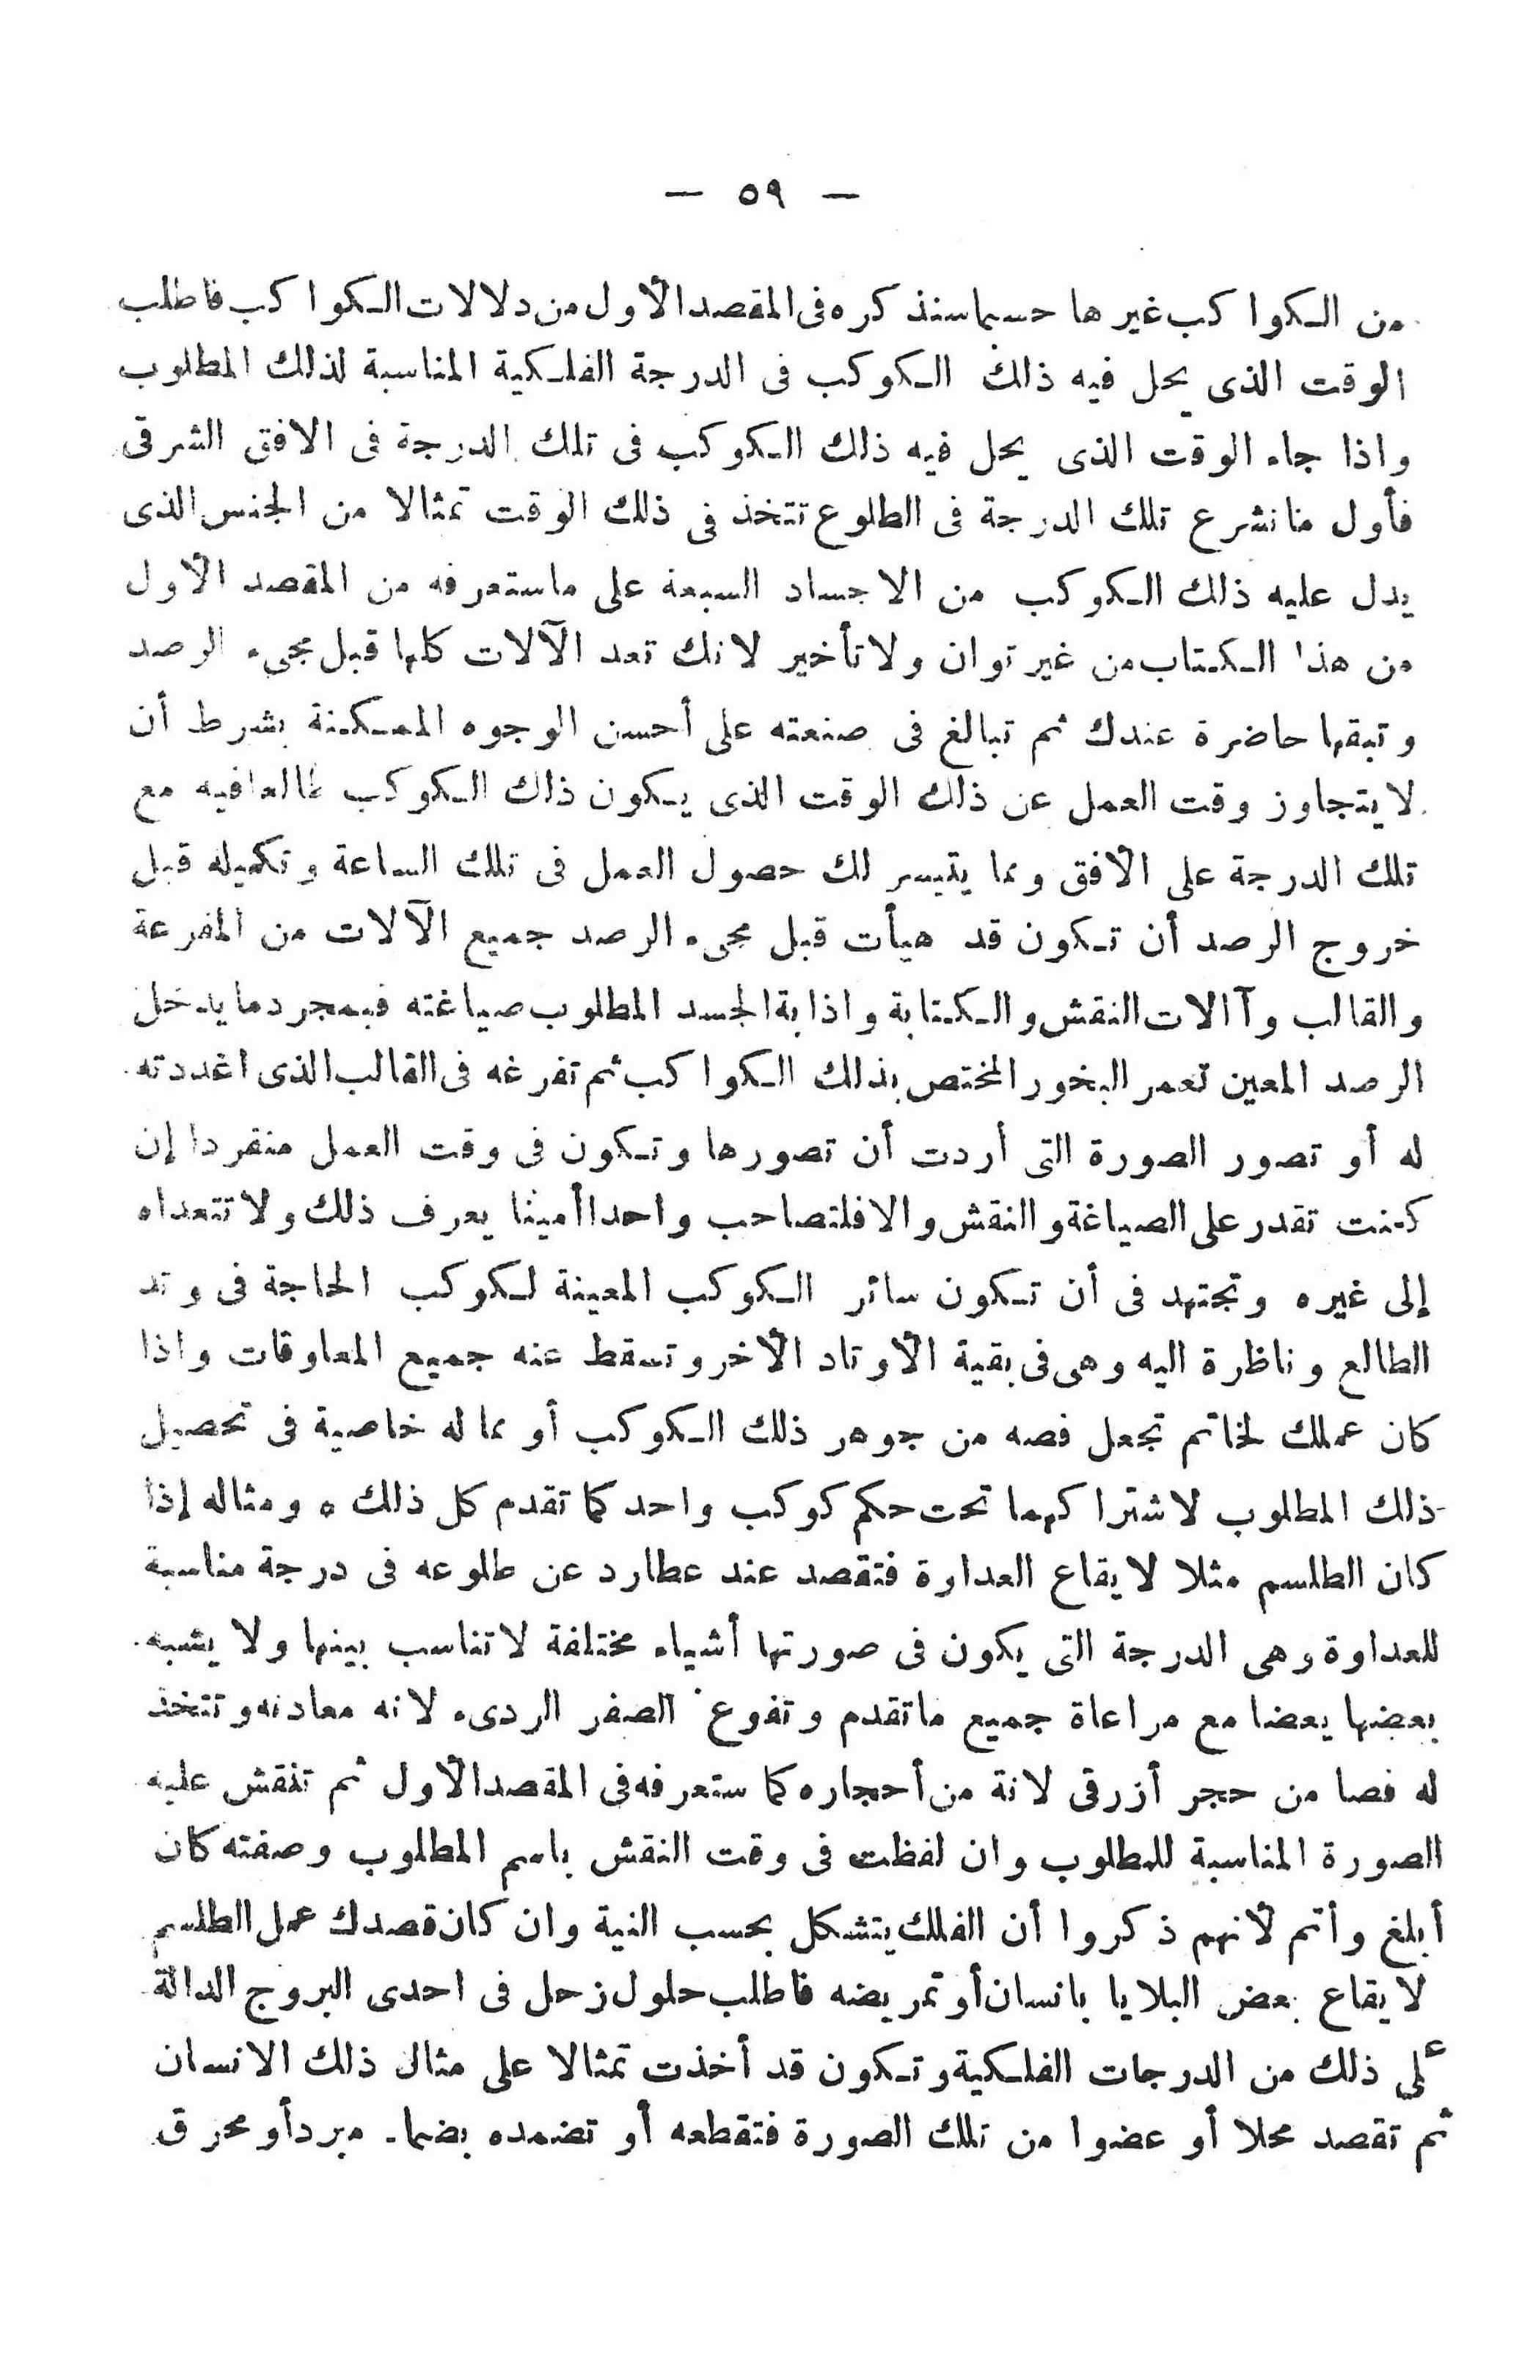 — ٥٩ —
من الكواكب غيرها حسبما سنذكره فى المقصد الأول من دلالات الكواكب فاطلب
الوقت الذى يحل فيه ذلك الكوكب فى الدرجة الفلكية المناسبة لذلك المطلوب
واذا جاء الوقت الذى يحل فيه ذلك الكوكب فى تلك الدرجة فى الافق الشرقى
فأول مانشرع تلك الدرجة فى الطلوع تتخذ فى ذلك الوقت تمثالا من الجنس الذى
يدل عليه ذلك الكوكب من الاجساد السبعة على ماستعرفه من المقصد الأول
من هذا الكتاب من غير توان ولا تأخير لانك تعد الآلات كلها قبل مجىء الرصد
وتبقها حاضرة عندك ثم تبالغ فى صنعته على أحسن الوجوه الممكنة بشرط أن
لا يتجاوز وقت العمل عن ذلك الوقت الذى يكون ذلك الكوكب طالعا فيه مع
تلك الدرجة على الأفق ومما يتيسر لك حصول العمل فى تلك الساعة وتكميله قبل
خروج الرصد أن تكون قد هيأت قبل مجىء الرصد جميع الآلات من المفرعة
والقالب وآالات النقش والكتابة واذابة الجسد المطلوب صياغته فبمجرد ما يدخل
الرصد المعين تعمر البخور المختص بذلك الكواكب ثم تفرغه فى القالب الذى اغددته
له أو تصور الصورة التى أردت أن تصورها وتكون فى وقت العمل منفردا إن
كنت تقدر على الصياغة والنقش والا فلتصاحب واحدا أمينا يعرف ذلك ولا تتعداه
إلى غيره وتجتهد فى أن تكون سائر الكوكب المعينة لكوكب الحاجة فى وتد
الطالع وناظرة اليه وهى فى بقية الأوتاد الأخر وتسقط عنه جميع المعاوقات واذا
كان عملك لخاتم تجعل فصه من جوهر ذلك الكوكب أو مما له خاصية فى تحصيل
ذلك المطلوب لاشتراكهما تحت حكم كوكب واحد كما تقدم كل ذلك ه ومثاله إذا
كان الطلسم مثلا لايقاع العدارة فتقصد عند عطارد عن طلوعه فى درجة مناسبة
للعداوة وهى الدرجة التى يكون فى صورتها أشياء مختلفة لا تناسب بينها ولا يشبه
بعضها يعضا مع مراعاة جميع ماتقدم وتفوع الصفر الردىء لانه معادنه وتتخذ
له فصا من حجر أزرقى لانة من أحجاره كما ستعرفه فى المقصد الأول ثم تنقش عليه
الصورة المناسبة للمطلوب وان لفظت فى وقت النقش باسم المطلوب وصفته كان
أبلغ وأتم لأنهم ذكروا أن الفلك يتشكل بحسب النية وان كان قصدك عمل الطلسم
لايقاع بعض البلايا بانسان أو تمريضه فاطلب حلول زحل فى احدى البروج الدالة
على ذلك من الدرجات الفلكية وتكون قد أخذت تمثالا على مثال ذلك الانسان
ثم تقصد محلا أو عضوا من تلك الصورة فتقطعه أو تضمده بضما. مبردأو محرق